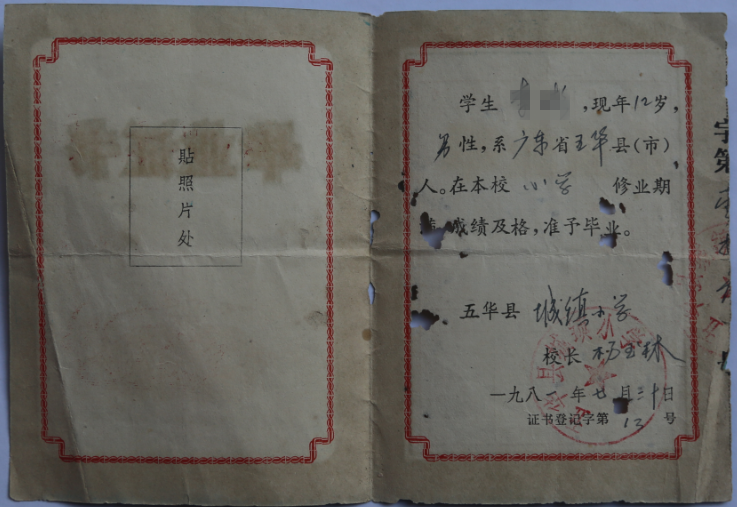 毕业证书
贴照片处
学生 ，现年12岁，
男性，系广东省五华县(市)
人。在本校 小学 修业期
满成绩及格，准予毕业。
五华县 城镇小学
校长 杨
一九八一年七月三十日
证书登记字第 12 号
字第